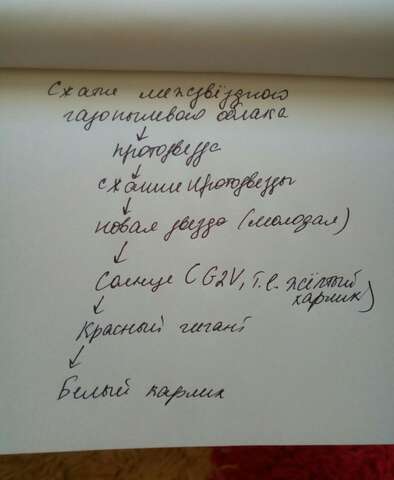 Сжатие межзвёздного
газопылевого облака
↓
протозвезда
↓
сжатие протозвезды
↓
новая звезда (молодая)
↓
Солнце (G2V, т.е. жёлтый
карлик)
↓
Красный гигант
↓
Белый карлик